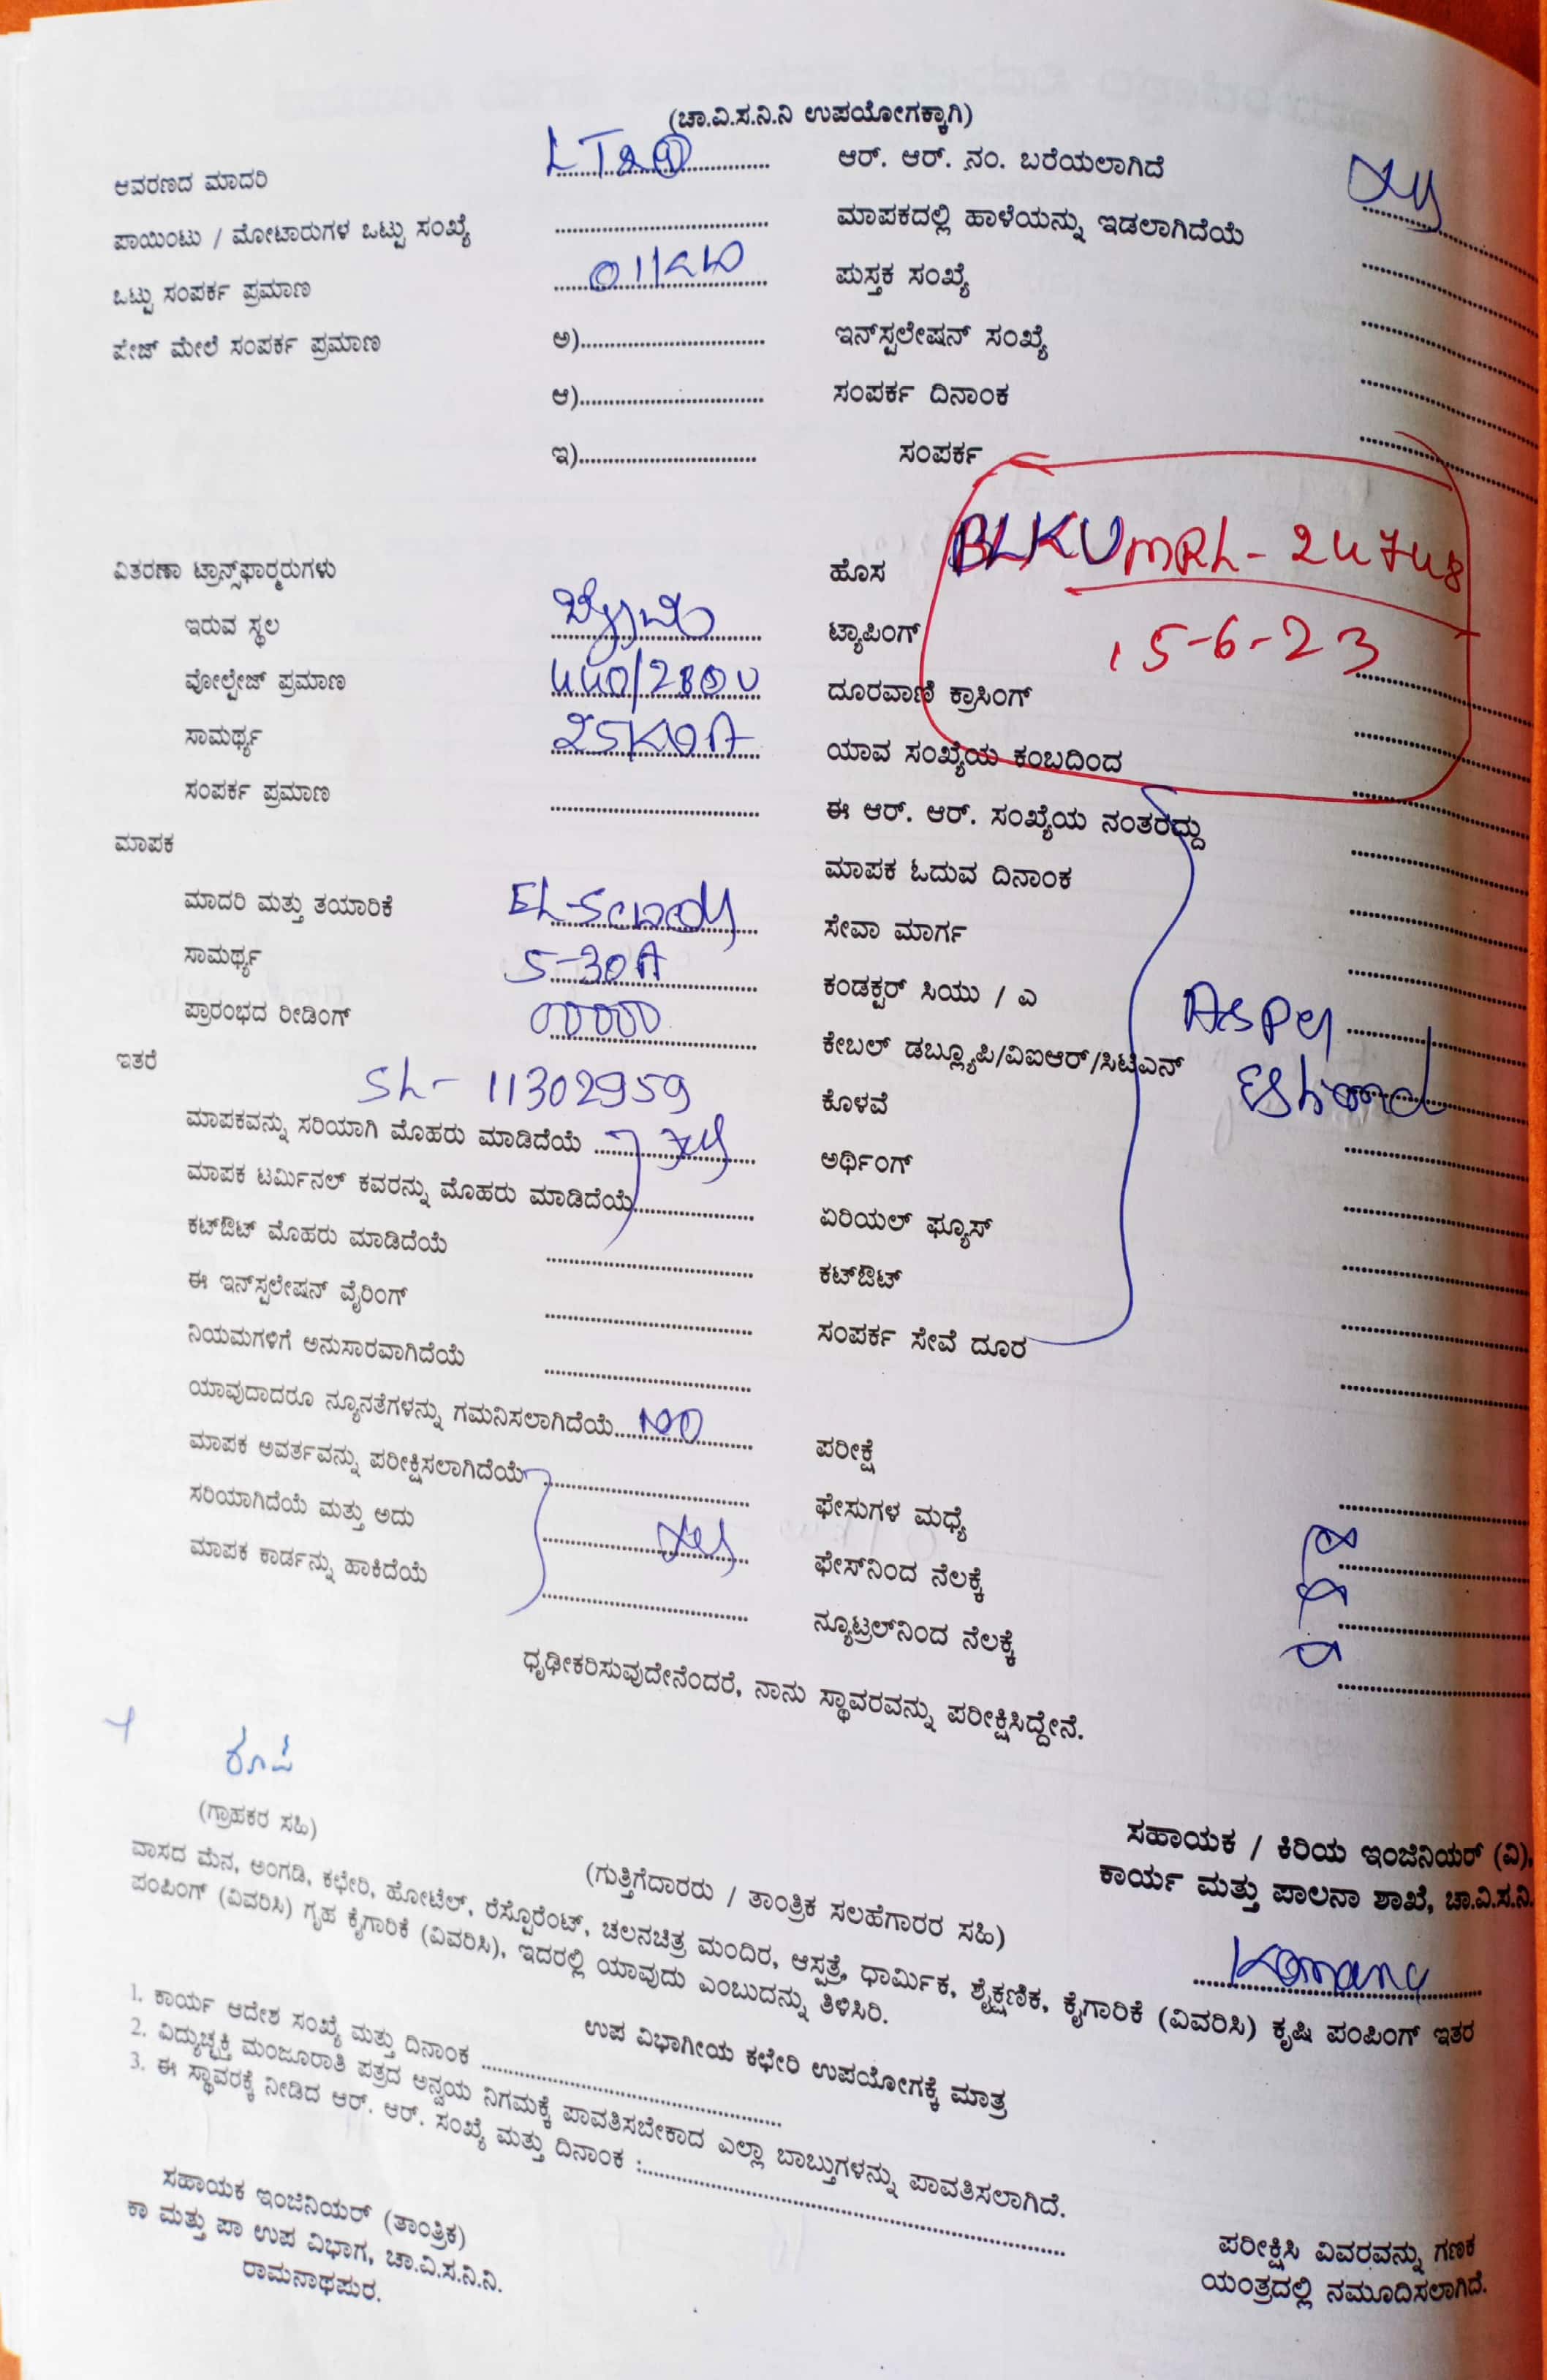 (ಚಾ.ವಿ.ಸ.ನಿ.ನಿ ಉಪಯೋಗಕ್ಕಾಗಿ)
ಆವರಣದ ಮಾದರಿ LT2
ಪಾಯಿಂಟು / ಮೋಟಾರುಗಳ ಒಟ್ಟು ಸಂಖ್ಯೆ
ಒಟ್ಟು ಸಂಪರ್ಕ ಪ್ರಮಾಣ
ಪೇಜ್ ಮೇಲೆ ಸಂಪರ್ಕ ಪ್ರಮಾಣ ಅ)
ಆ)
ಇ)
ವಿತರಣಾ ಟ್ರಾನ್ಸ್‌ಫಾರ್‍ಮರುಗಳು
ಇರುವ ಸ್ಥಲ
ವೋಲ್ಟೇಜ್ ಪ್ರಮಾಣ 440/230V
ಸಾಮರ್ಥ್ಯ 25KVA
ಸಂಪರ್ಕ ಪ್ರಮಾಣ
ಮಾಪಕ
ಮಾದರಿ ಮತ್ತು ತಯಾರಿಕೆ
ಸಾಮರ್ಥ್ಯ 5-30A
ಪ್ರಾರಂಭದ ರೀಡಿಂಗ್ 00000
ಇತರೆ
SL- 11302959
ಮಾಪಕವನ್ನು ಸರಿಯಾಗಿ ಮೊಹರು ಮಾಡಿದೆಯೆ
ಮಾಪಕ ಟರ್ಮಿನಲ್ ಕವರನ್ನು ಮೊಹರು ಮಾಡಿದೆಯೆ
ಕಟ್‌ಔಟ್ ಮೊಹರು ಮಾಡಿದೆಯೆ
ಈ ಇನ್‌ಸ್ಟಲೇಷನ್ ವೈರಿಂಗ್
ನಿಯಮಗಳಿಗೆ ಅನುಸಾರವಾಗಿದೆಯೆ
ಯಾವುದಾದರೂ ನ್ಯೂನತೆಗಳನ್ನು ಗಮನಿಸಲಾಗಿದೆಯೆ NO
ಮಾಪಕ ಅವರ್ತವನ್ನು ಪರೀಕ್ಷಿಸಲಾಗಿದೆಯೆ
ಸರಿಯಾಗಿದೆಯೆ ಮತ್ತು ಅದು
ಮಾಪಕ ಕಾರ್ಡನ್ನು ಹಾಕಿದೆಯೆ
ಆರ್. ಆರ್. ನಂ. ಬರೆಯಲಾಗಿದೆ
ಮಾಪಕದಲ್ಲಿ ಹಾಳೆಯನ್ನು ಇಡಲಾಗಿದೆಯೆ
ಪುಸ್ತಕ ಸಂಖ್ಯೆ
ಇನ್‌ಸ್ಟಲೇಷನ್ ಸಂಖ್ಯೆ
ಸಂಪರ್ಕ ದಿನಾಂಕ
ಸಂಪರ್ಕ
BLKUMRL- 24748
15-6-23
ಹೊಸ
ಟ್ಯಾಪಿಂಗ್
ದೂರವಾಣಿ ಕ್ರಾಸಿಂಗ್
ಯಾವ ಸಂಖ್ಯೆಯ ಕಂಬದಿಂದ
ಈ ಆರ್. ಆರ್. ಸಂಖ್ಯೆಯ ನಂತರದ್ದು
ಮಾಪಕ ಓದುವ ದಿನಾಂಕ
ಸೇವಾ ಮಾರ್ಗ
ಕಂಡಕ್ಟರ್ ಸಿಯು / ಎ
ಕೇಬಲ್ ಡಬ್ಲ್ಯೂಪಿ/ವಿಐಆರ್/ಸಿಟಿಎನ್
ಕೊಳವೆ
ಅರ್ಥಿಂಗ್
ಏರಿಯಲ್ ಫ್ಯೂಸ್
ಕಟ್‌ಔಟ್
ಸಂಪರ್ಕ ಸೇವೆ ದೂರ
ಪರೀಕ್ಷೆ
ಫೇಸುಗಳ ಮಧ್ಯೆ
ಫೇಸ್‌ನಿಂದ ನೆಲಕ್ಕೆ
ನ್ಯೂಟ್ರಲ್‌ನಿಂದ ನೆಲಕ್ಕೆ
ಧೃಢೀಕರಿಸುವುದೇನೆಂದರೆ, ನಾನು ಸ್ಥಾವರವನ್ನು ಪರೀಕ್ಷಿಸಿದ್ದೇನೆ.
ರೂಪ
(ಗ್ರಾಹಕರ ಸಹಿ)
(ಗುತ್ತಿಗೆದಾರರು / ತಾಂತ್ರಿಕ ಸಲಹೆಗಾರರ ಸಹಿ)
ಸಹಾಯಕ / ಕಿರಿಯ ಇಂಜಿನಿಯರ್ (ವಿ),
ಕಾರ್ಯ ಮತ್ತು ಪಾಲನಾ ಶಾಖೆ, ಚಾ.ವಿ.ಸ.ನಿ.
ವಾಸದ ಮನೆ, ಅಂಗಡಿ, ಕಛೇರಿ, ಹೋಟೆಲ್, ರೆಸ್ಟೊರೆಂಟ್, ಚಲನಚಿತ್ರ ಮಂದಿರ, ಆಸ್ಪತ್ರೆ, ಧಾರ್ಮಿಕ, ಶೈಕ್ಷಣಿಕ, ಕೈಗಾರಿಕೆ (ವಿವರಿಸಿ) ಕೃಷಿ ಪಂಪಿಂಗ್ ಇತರ
ಪಂಪಿಂಗ್ (ವಿವರಿಸಿ) ಗೃಹ ಕೈಗಾರಿಕೆ (ವಿವರಿಸಿ), ಇದರಲ್ಲಿ ಯಾವುದು ಎಂಬುದನ್ನು ತಿಳಿಸಿರಿ.
ಉಪ ವಿಭಾಗೀಯ ಕಛೇರಿ ಉಪಯೋಗಕ್ಕೆ ಮಾತ್ರ
1. ಕಾರ್ಯ ಆದೇಶ ಸಂಖ್ಯೆ ಮತ್ತು ದಿನಾಂಕ
2. ವಿದ್ಯುಚ್ಛಕ್ತಿ ಮಂಜೂರಾತಿ ಪತ್ರದ ಅನ್ವಯ ನಿಗಮಕ್ಕೆ ಪಾವತಿಸಬೇಕಾದ ಎಲ್ಲಾ ಬಾಬ್ತುಗಳನ್ನು ಪಾವತಿಸಲಾಗಿದೆ.
3. ಈ ಸ್ಥಾವರಕ್ಕೆ ನೀಡಿದ ಆರ್. ಆರ್. ಸಂಖ್ಯೆ ಮತ್ತು ದಿನಾಂಕ :
ಸಹಾಯಕ ಇಂಜಿನಿಯರ್ (ತಾಂತ್ರಿಕ)
ಕಾ ಮತ್ತು ಪಾ ಉಪ ವಿಭಾಗ, ಚಾ.ವಿ.ಸ.ನಿ.ನಿ.
ರಾಮನಾಥಪುರ.
ಪರೀಕ್ಷಿಸಿ ವಿವರವನ್ನು ಗಣಕ
ಯಂತ್ರದಲ್ಲಿ ನಮೂದಿಸಲಾಗಿದೆ.